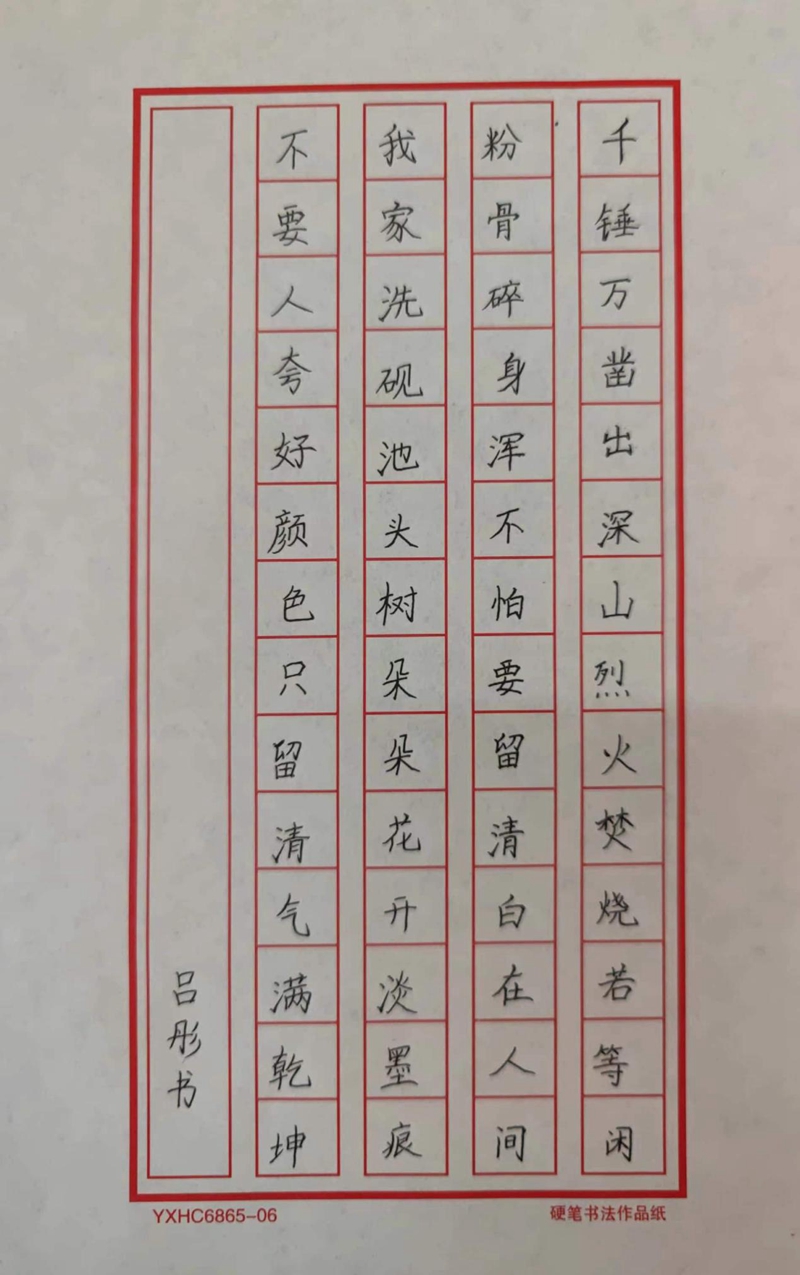 千锤万凿出深山烈火焚烧若等闲
粉骨碎身浑不怕要留清白在人间
我家洗砚池头树朵朵花开淡墨痕
不要人夸好颜色只留清气满乾坤
吕彤书
YXHC6865-06
硬笔书法作品纸